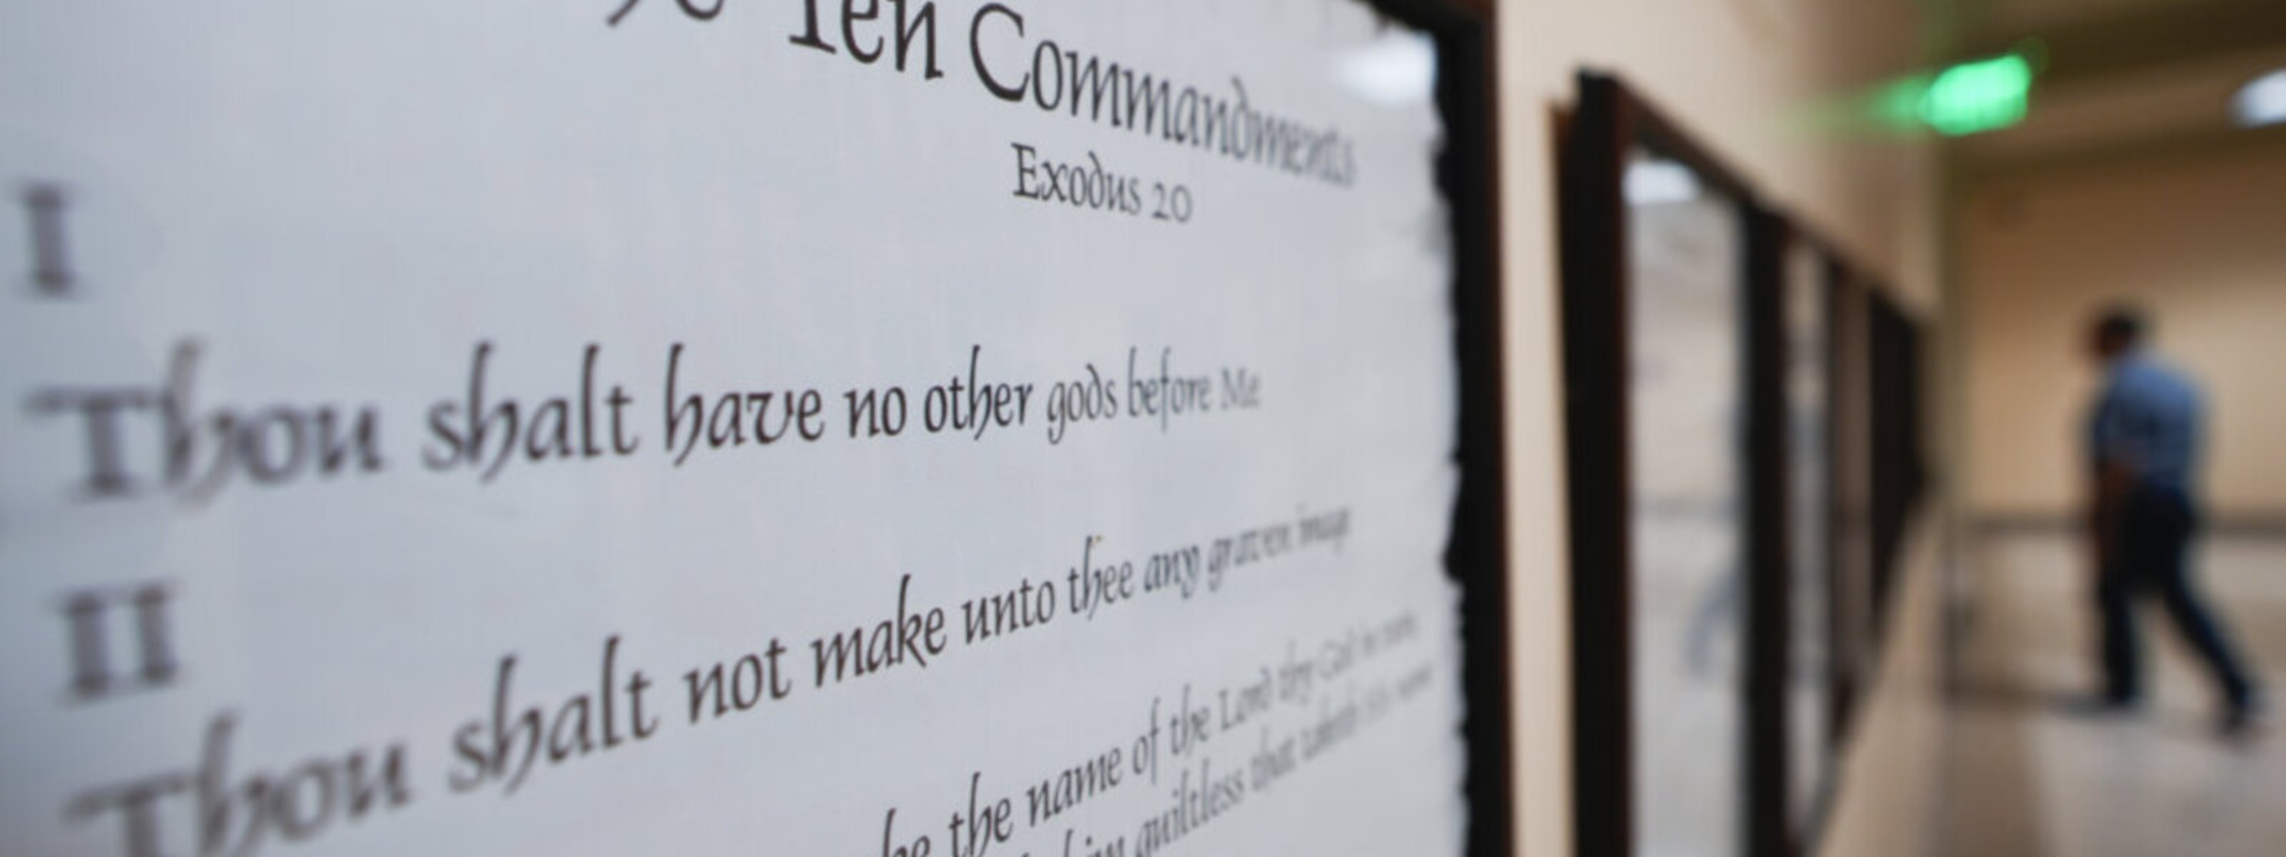 Ten Commandments
Exodus 20
I
Thou shalt have no other gods before Me
II
Thou shalt not make unto thee any graven image
the name of the Lord thy God in vain
him guiltless that taketh His name